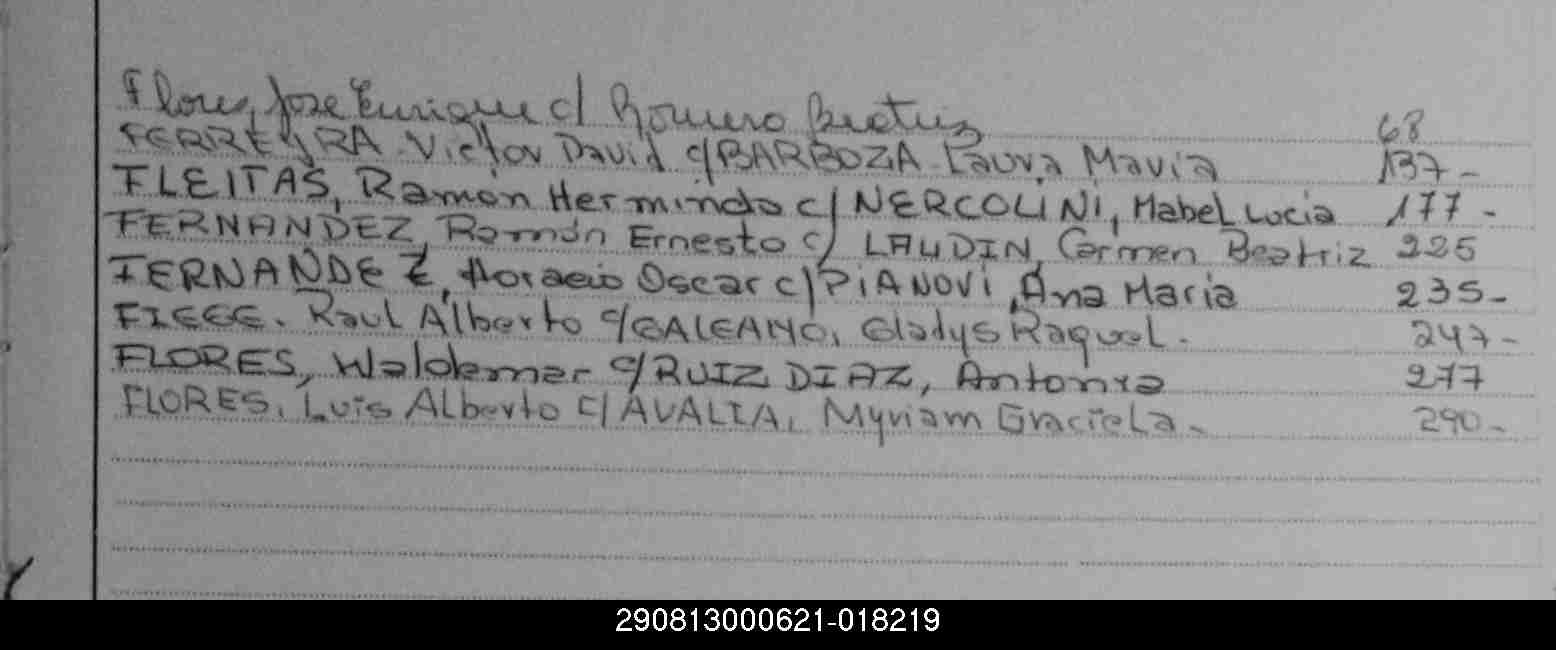 Flores, Jose Enrique c/ Romero Beatriz 68
FERREYRA. Victor David c/BARBOZA. Laura Maria 137-
FLEITAS, Ramon Hermindo c/ NERCOLINI, Mabel Lucia 177-
FERNANDEZ, Ramón Ernesto c/ LAUDIN, Carmen Beatriz 225
FERNANDEZ, Horacio Oscar c/PIANOVI, Ana Maria 235-
Raul Alberto c/GALEANO, Gladys Raquel. 247-
FLORES, Waldemar c/RUIZ DIAZ, Antonia 277
FLORES, Luis Alberto c/AVALIA, Myriam Graciela. 290-
290813000621-018219